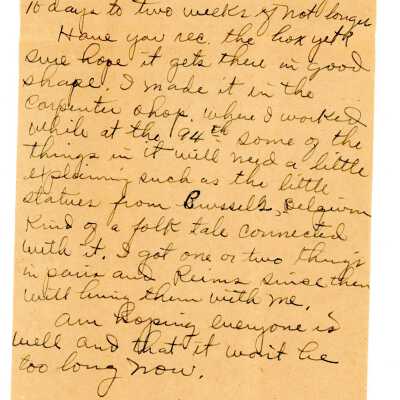 10 days to two weeks & not longer
Have you rec. the box yet &
sure hope it gets there in good
shape. I made it in the
carpenter shop. where I worked
while at the 94th some of the
things in it will need a little
explaining such as the little
statues from Brussels, Belgium
Kind of a folk tale connected
with it. I got one or two things
in paris and Reims since then
will bring them with me.
Am hoping everyone is
well and that it won't be
too long now.